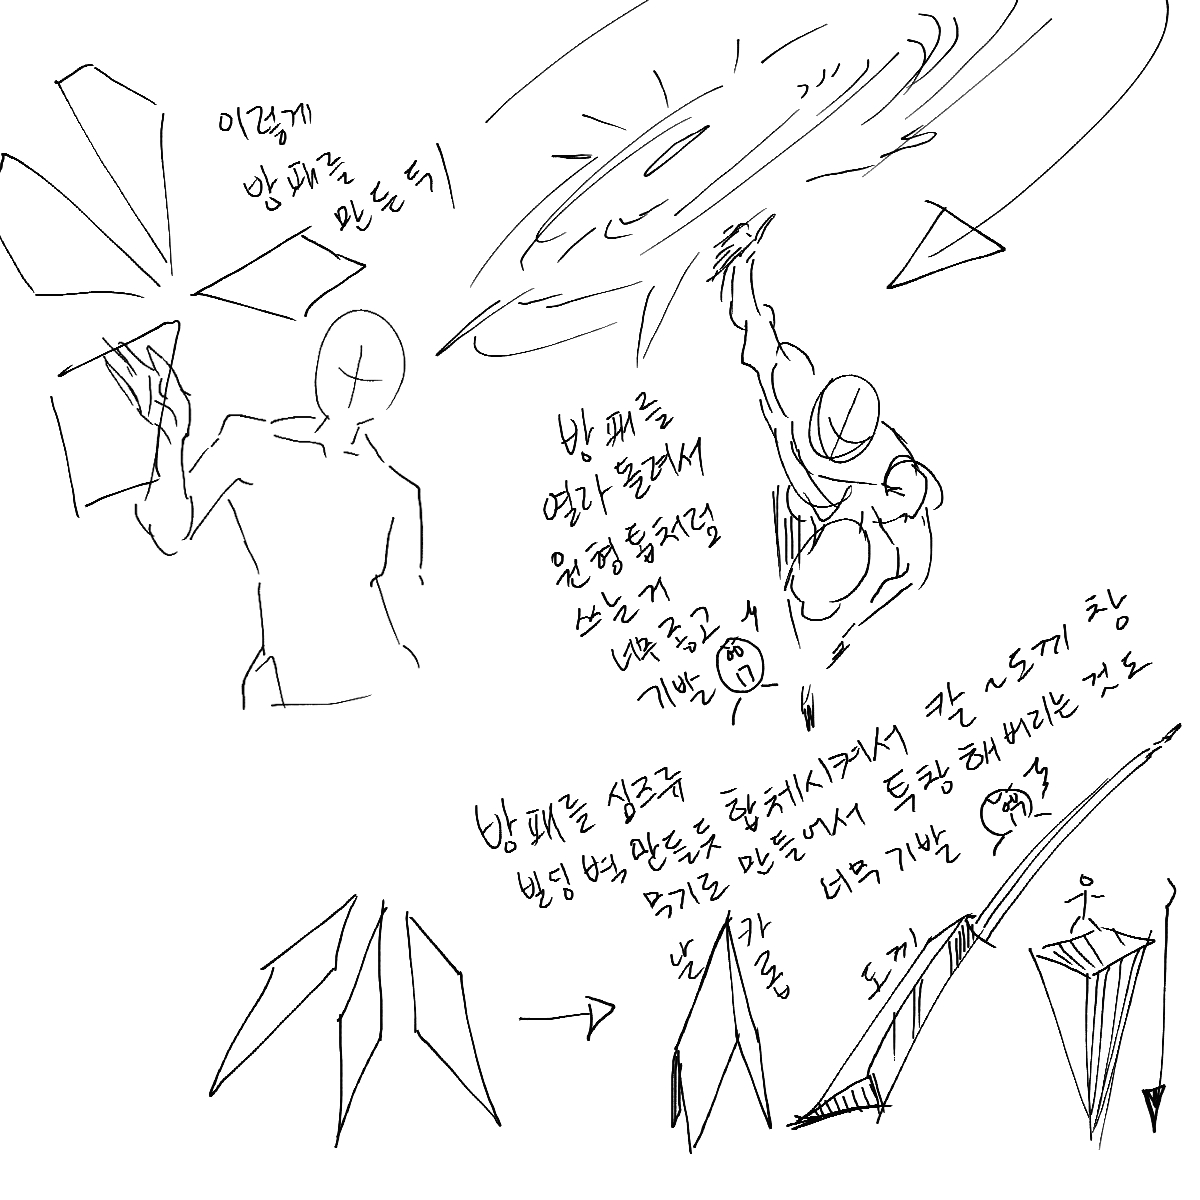 이렇게
방패를
만든 뒤
방패를
열라 돌려서
원형톱처럼
쓰는거
너무 좋고
기발
방패를 심즈류
빌딩 벽 만들듯 합체시켜서 칼~도끼 창
무기로 만들어서 특창 해버리는 것도
너무 기발
날카롭
도끼